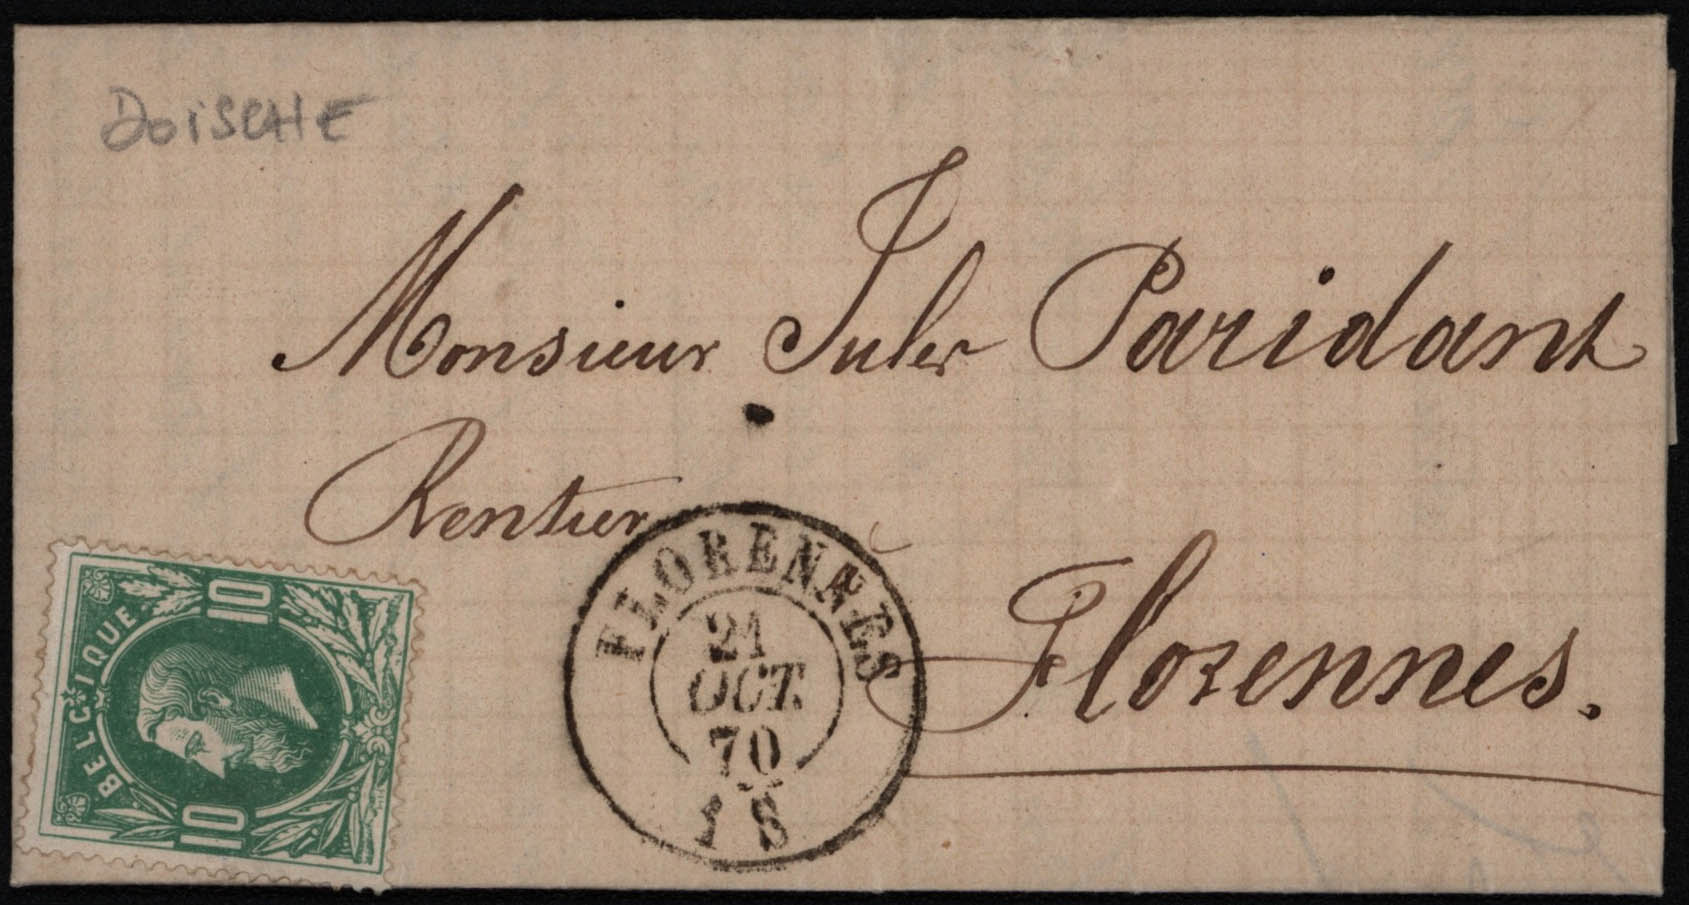 DOISCHE
Monsieur Jules Paridant
Rentier
Florennes.
FLORENNES
21
OCT.
70
1 S
10
BELGIQUE
10